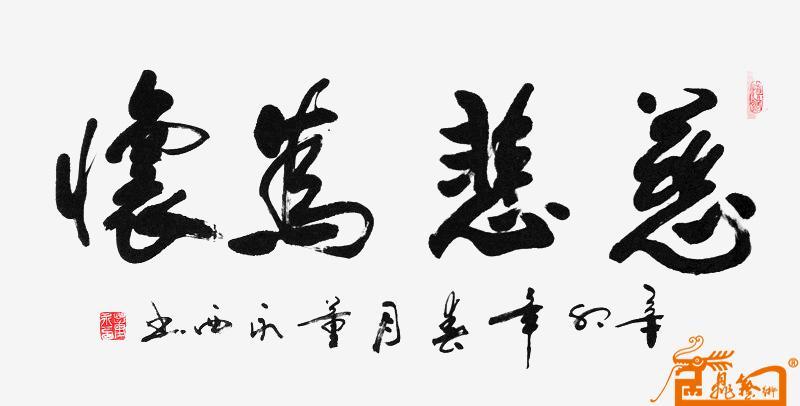 慈悲為懷
辛卯年春月董永西书